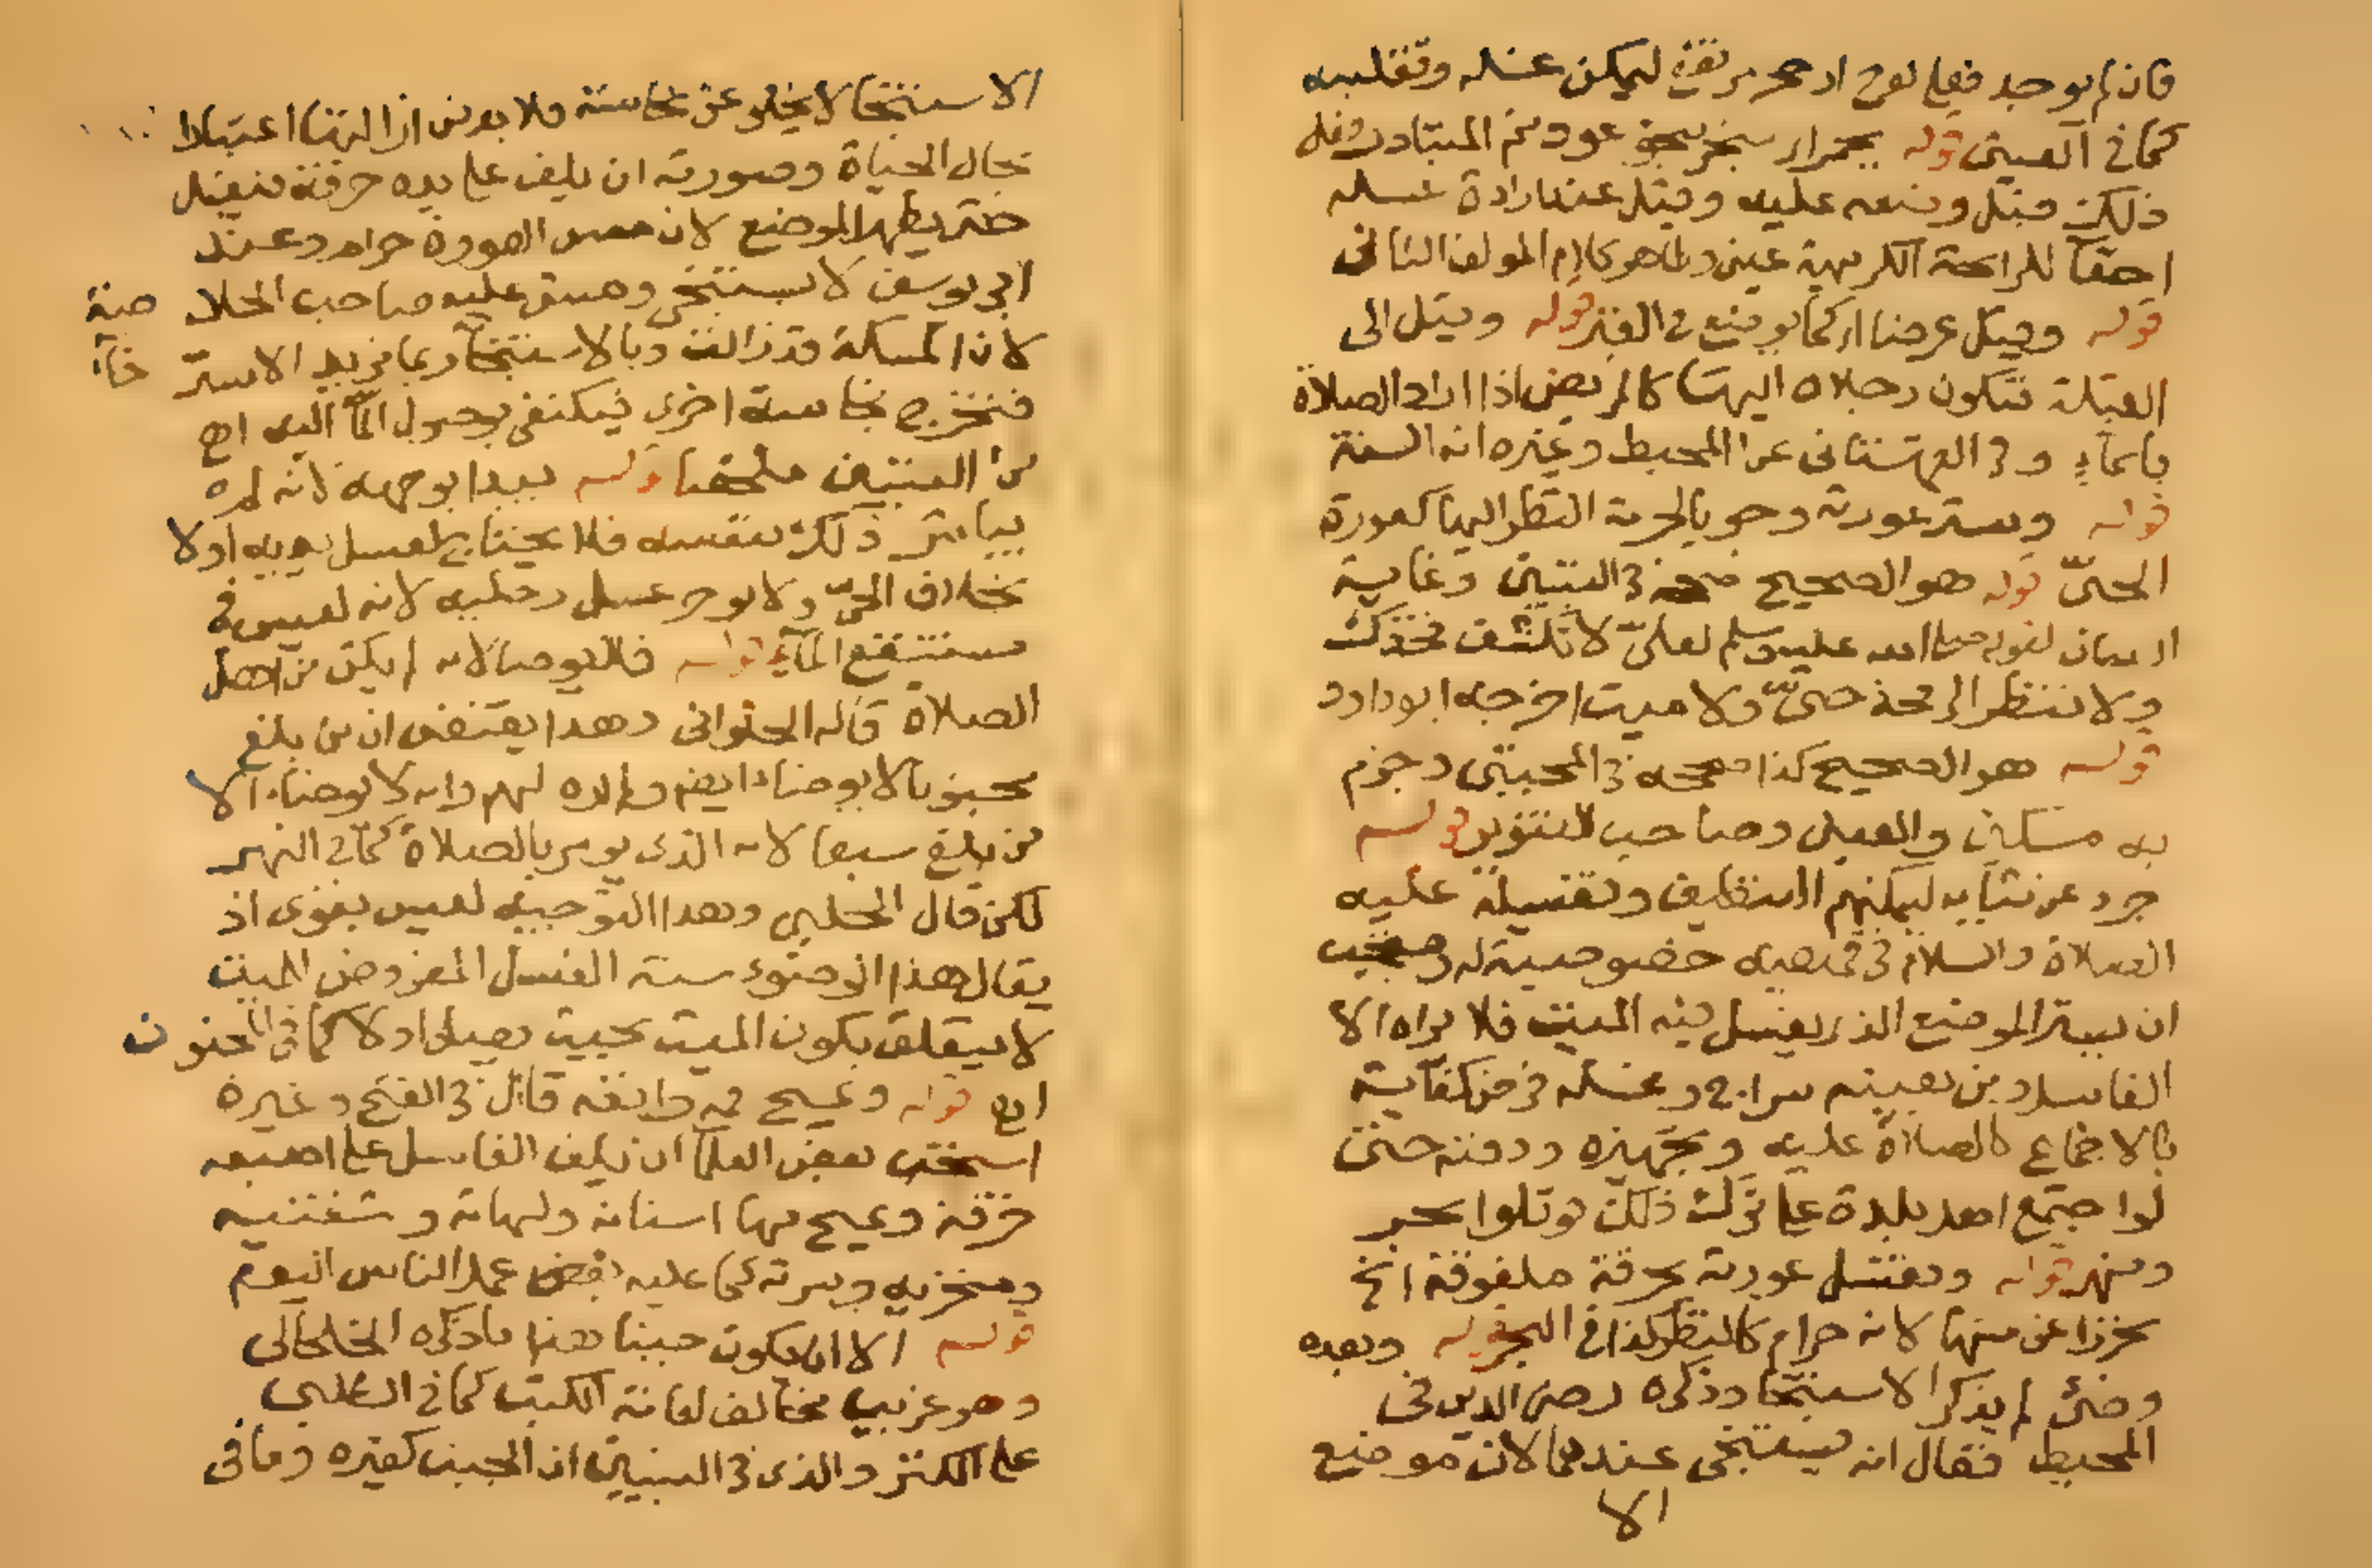 فان لم يوجد فعلى لوح او حجر مرتفع ليمكن غسله وتقليبه
كما في العيني قوله بجمر اي يبخر بنحو عود ثم المتبادر وفعل
ذلك قبل وضعه عليه وقيل عند ارادة غسله
اخفاء للرائحة الكريهة عيني وظاهر كلام المولف الثاني
قوله وقيل عرضا اي كما يوضع في القبر قوله وقيل الى
القبلة فتكون رجلاه اليها كالمريض اذا اراد الصلاة
بايماء وفي القهستاني عن المحيط وغيره انه السنة
قوله وستر عورته وجوبا لحرمة النظر اليها كعورة
الحيّ قوله هو الصحيح صححه في التبيين وغاية
البيان لقوله صلى الله عليه وسلم لعليّ لا تكشف فخذك
ولا تنظر الى فخذ حيّ ولا ميت اخرجه ابو داود
قوله هو الصحيح كذا صححه في المجتبى وجزم
به مسكين والعيني وصاحب التنوير قوله
جرد عن ثيابه ليمكنهم التنظيف وتغسيله عليه
الصلاة والسلام في قميصه خصوصية له ويستحب
ان يستر الموضع الذي يغسل فيه الميت فلا يراه الا
الغاسل ومن يعينه سراج وغسله فرض كفاية
بالاجماع كالصلاة عليه وتجهيزه ودفنه حتى
لو اجتمع اهل بلدة على ترك ذلك قوتلوا بحر
ونهر قوله وتغسل عورته بخرقة ملفوفة الخ
تحرزا عن مسها لانه حرام كالنظر كذا في البحر قوله وبعده
وضئ لم يذكر الاستنجا وذكره رضي الدين في
المحيط فقال انه يستنجى عندهما لان موضع
الا
الاستنجا لا يخلو عن نجاسة فلا بد من ازالتها اعتبارا
بحال الحياة وصورته ان يلف على يده خرقة فيغسل
حتى يطهر الموضع لان مس العورة حرام وعند
ابي يوسف لا يستنجى ومشى عليه صاحب الخلاصة
لان المسكة قد زالت وبالاستنجآ ربما يزيد الاسترخآء
فتخرج نجاسة اخرى فيكتفى بوصول المآ اليه اهـ
من التبيين ملخصا قوله يبدا بوجهه لانه لم
يباشر ذلك بنفسه فلا يحتاج لغسل يديه اولا
بخلاف الحيّ ولا يوخر غسل رجليه لانه ليس في
مستنقع المآء قوله فلا يوضا لانه لم يكن من اهل
الصلاة قاله الحلواني وهذا يقتضي ان من بلغ
مجنونا لا يوضا ايضا ولم اره لهم وانه لا يوضا الا
من بلغ سبعا لانه الذي يومر بالصلاة كما في النهر
لكن قال الحلبي وهذا التوجيه ليس بقوي اذ
يقال هذا الوضوء سنة الغسل المفروض للميت
لا يتعلق بكون الميت بحيث يصلى اولا كما في المجنون
اهـ قوله ويمسح فمه وانفه قال في الفتح وغيره
استحب بعض العلما ان يلف الغاسل على اصبعه
خرقة ويمسح بها اسنانه ولهاته وشفتيه
ومنخريه وسرته كما عليه عمل الناس اليوم
قوله الا ان يكون جنبا هذا ما ذكره الخلخالي
وهو غريب مخالف لعامة الكتب كما في الشلبي
على الكنز والذي في التبيين ان الجنب كغيره وما في